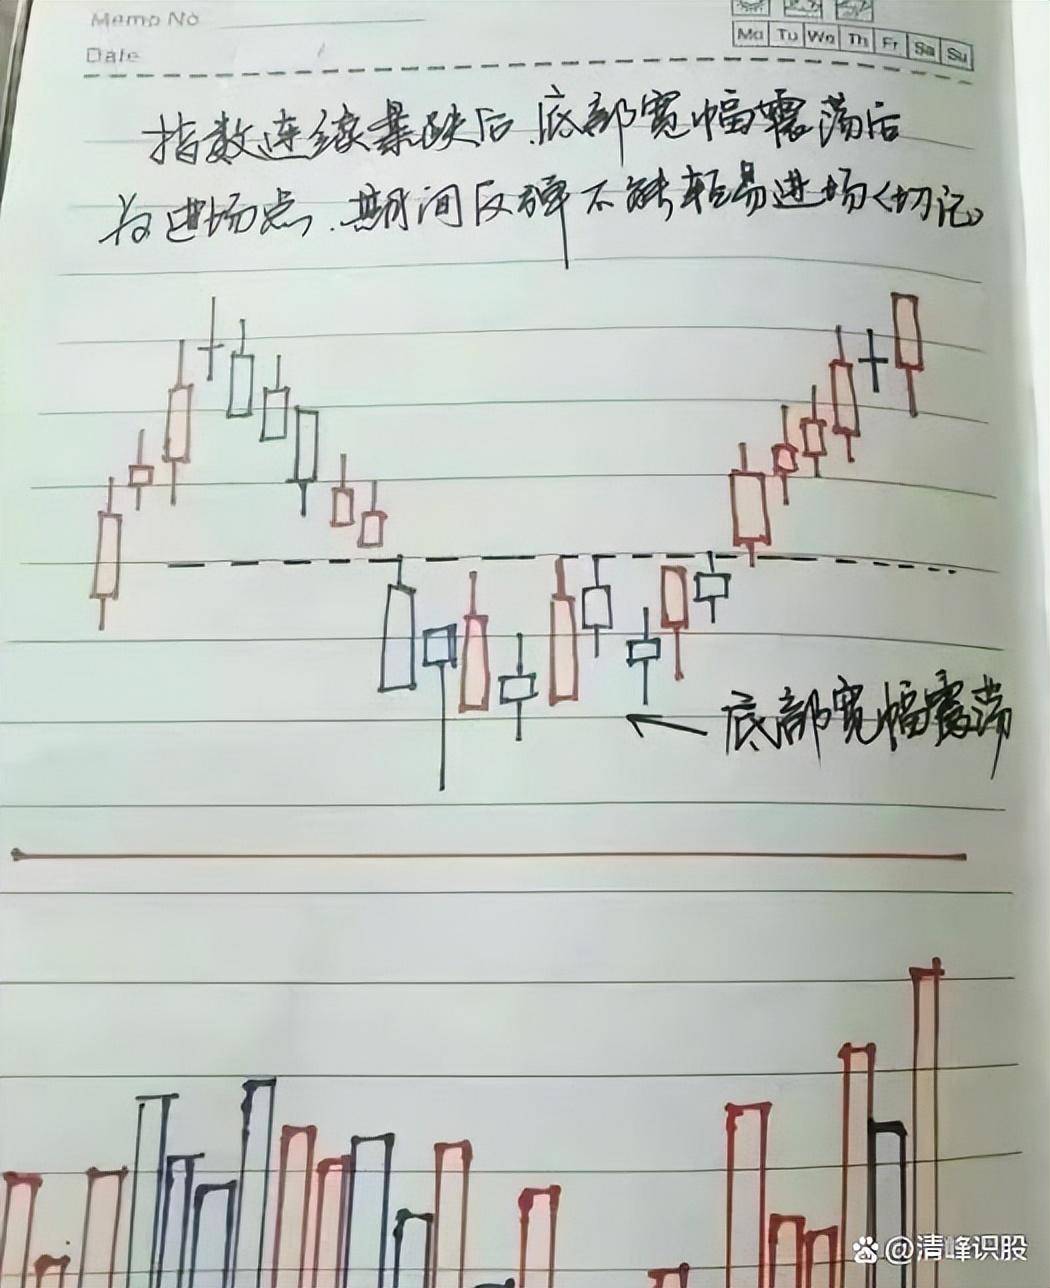 Memo No
Date
Mo Tu We Th Fr Sa Su
指数连续暴跌后.底部宽幅震荡后
为进场点.期间反弹不能轻易进场(切记)
底部宽幅震荡
@清峰识股